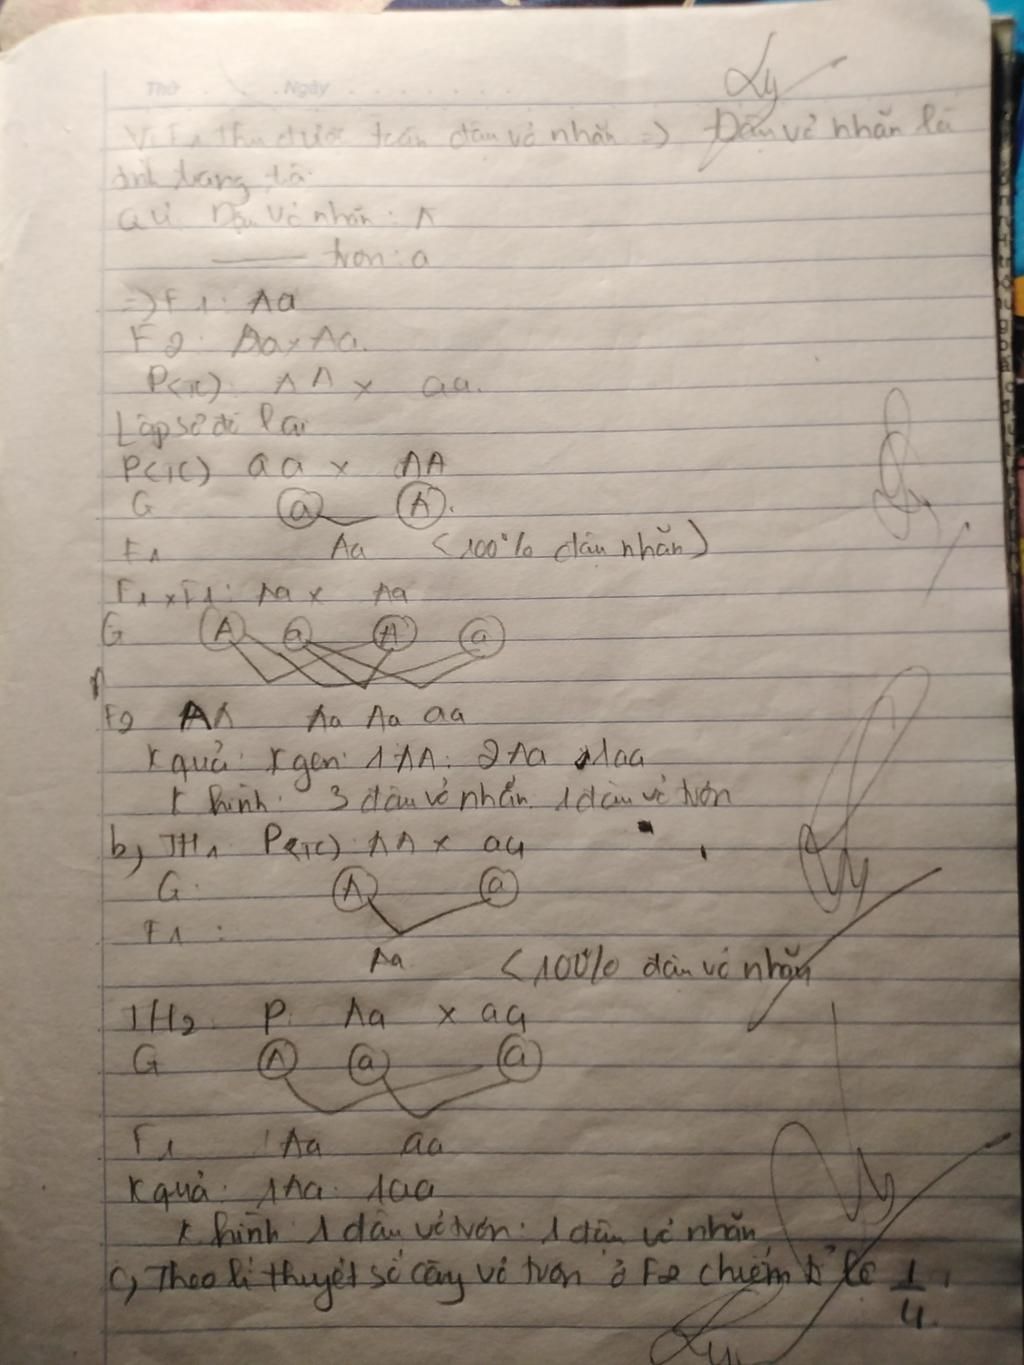 Thứ Ngày
Ly
Vì F1 thu được toàn đậu vỏ nhăn => Đậu vỏ nhăn là
tính trạng trội
QƯ Đậu vỏ nhăn: A
trơn: a
=> F1: Aa
F2: Aa x Aa.
P(TC) AA x aa.
Lập sơ đồ lai
P(TC) aa x AA
G a A.
F1 Aa (100% đậu nhăn)
F1 x F1: Aa x Aa
G A a A a
F2 AA Aa Aa aa
K quả: K gen: 1AA: 2Aa 1aa
K hình: 3 đậu vỏ nhăn. 1 đậu vỏ trơn
b, TH1 P(TC) AA x aa
G: A a
F1:
Aa (100% đậu vỏ nhăn
TH2 P: Aa x aa
G A a a
F1 Aa aa
K quả: 1Aa: 1aa
K hình 1 đậu vỏ trơn: 1 đậu vỏ nhăn
c, Theo lí thuyết số cây vỏ trơn ở F2 chiếm tỉ lệ 1/4.
Ly